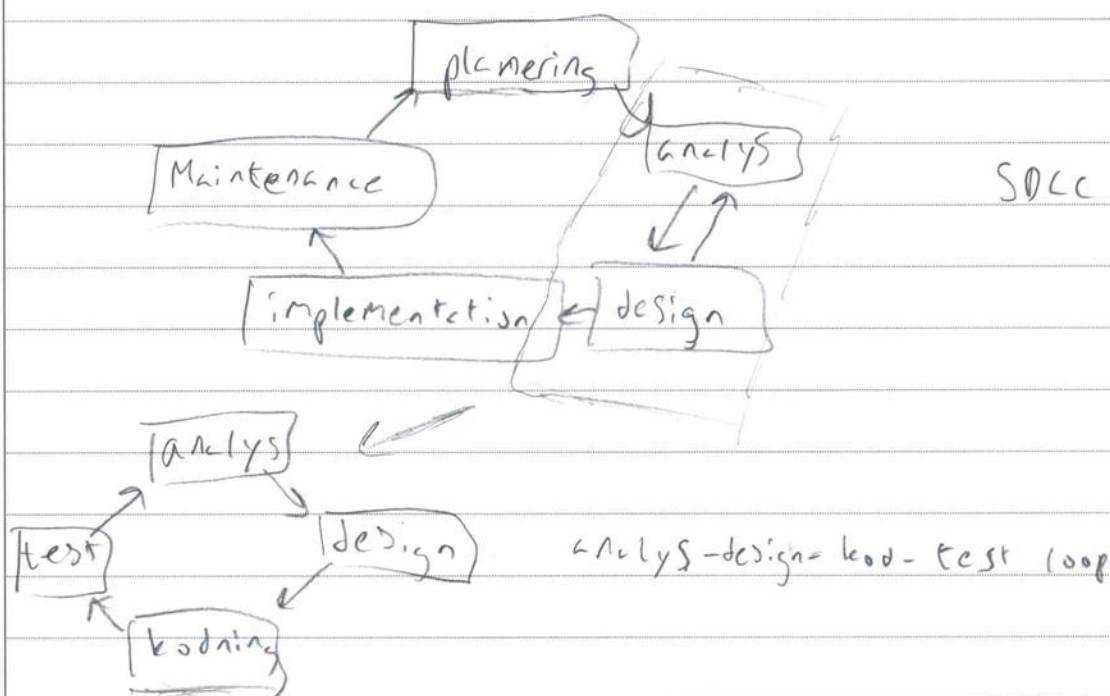 planering
analys
Maintenance
SDLC
implementation
design
analys
test
design
analys-design-kod-test loop
kodning